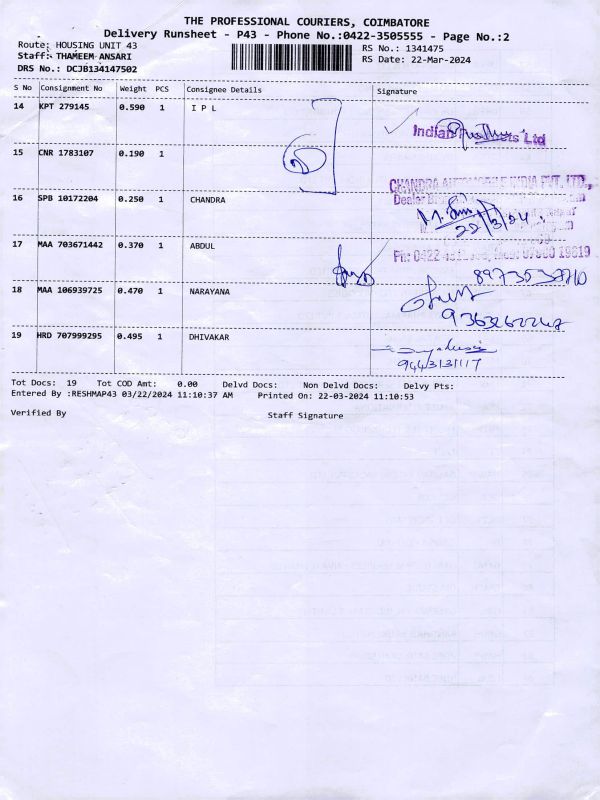 THE PROFESSIONAL COURIERS, COIMBATORE
Delivery Runsheet - P43 - Phone No.:0422-3505555 - Page No.:2
Route: HOUSING UNIT 43
RS No.: 1341475
Staff: THAMEEM ANSARI
RS Date: 22-Mar-2024
DRS No.: DCJB134147502
S No Consignment No Weight PCS Consignee Details Signature
14 KPT 279145 0.590 1 I P L
Ltd
15 CNR 1783107 0.190 1
CHANDRA INDIA PVT. LTD.,
Dealer
16 SPB 10172204 0.250 1 CHANDRA
22/3/24.
17 MAA 703671442 0.370 1 ABDUL
Ph: 0422 19619
18 MAA 106939725 0.470 1 NARAYANA
19 HRD 707999295 0.495 1 DHIVAKAR
9443131117
Tot Docs: 19 Tot COD Amt: 0.00 Delvd Docs: Non Delvd Docs: Delvy Pts:
Entered By :RESHMAP43 03/22/2024 11:10:37 AM Printed On: 22-03-2024 11:10:53
Verified By Staff Signature